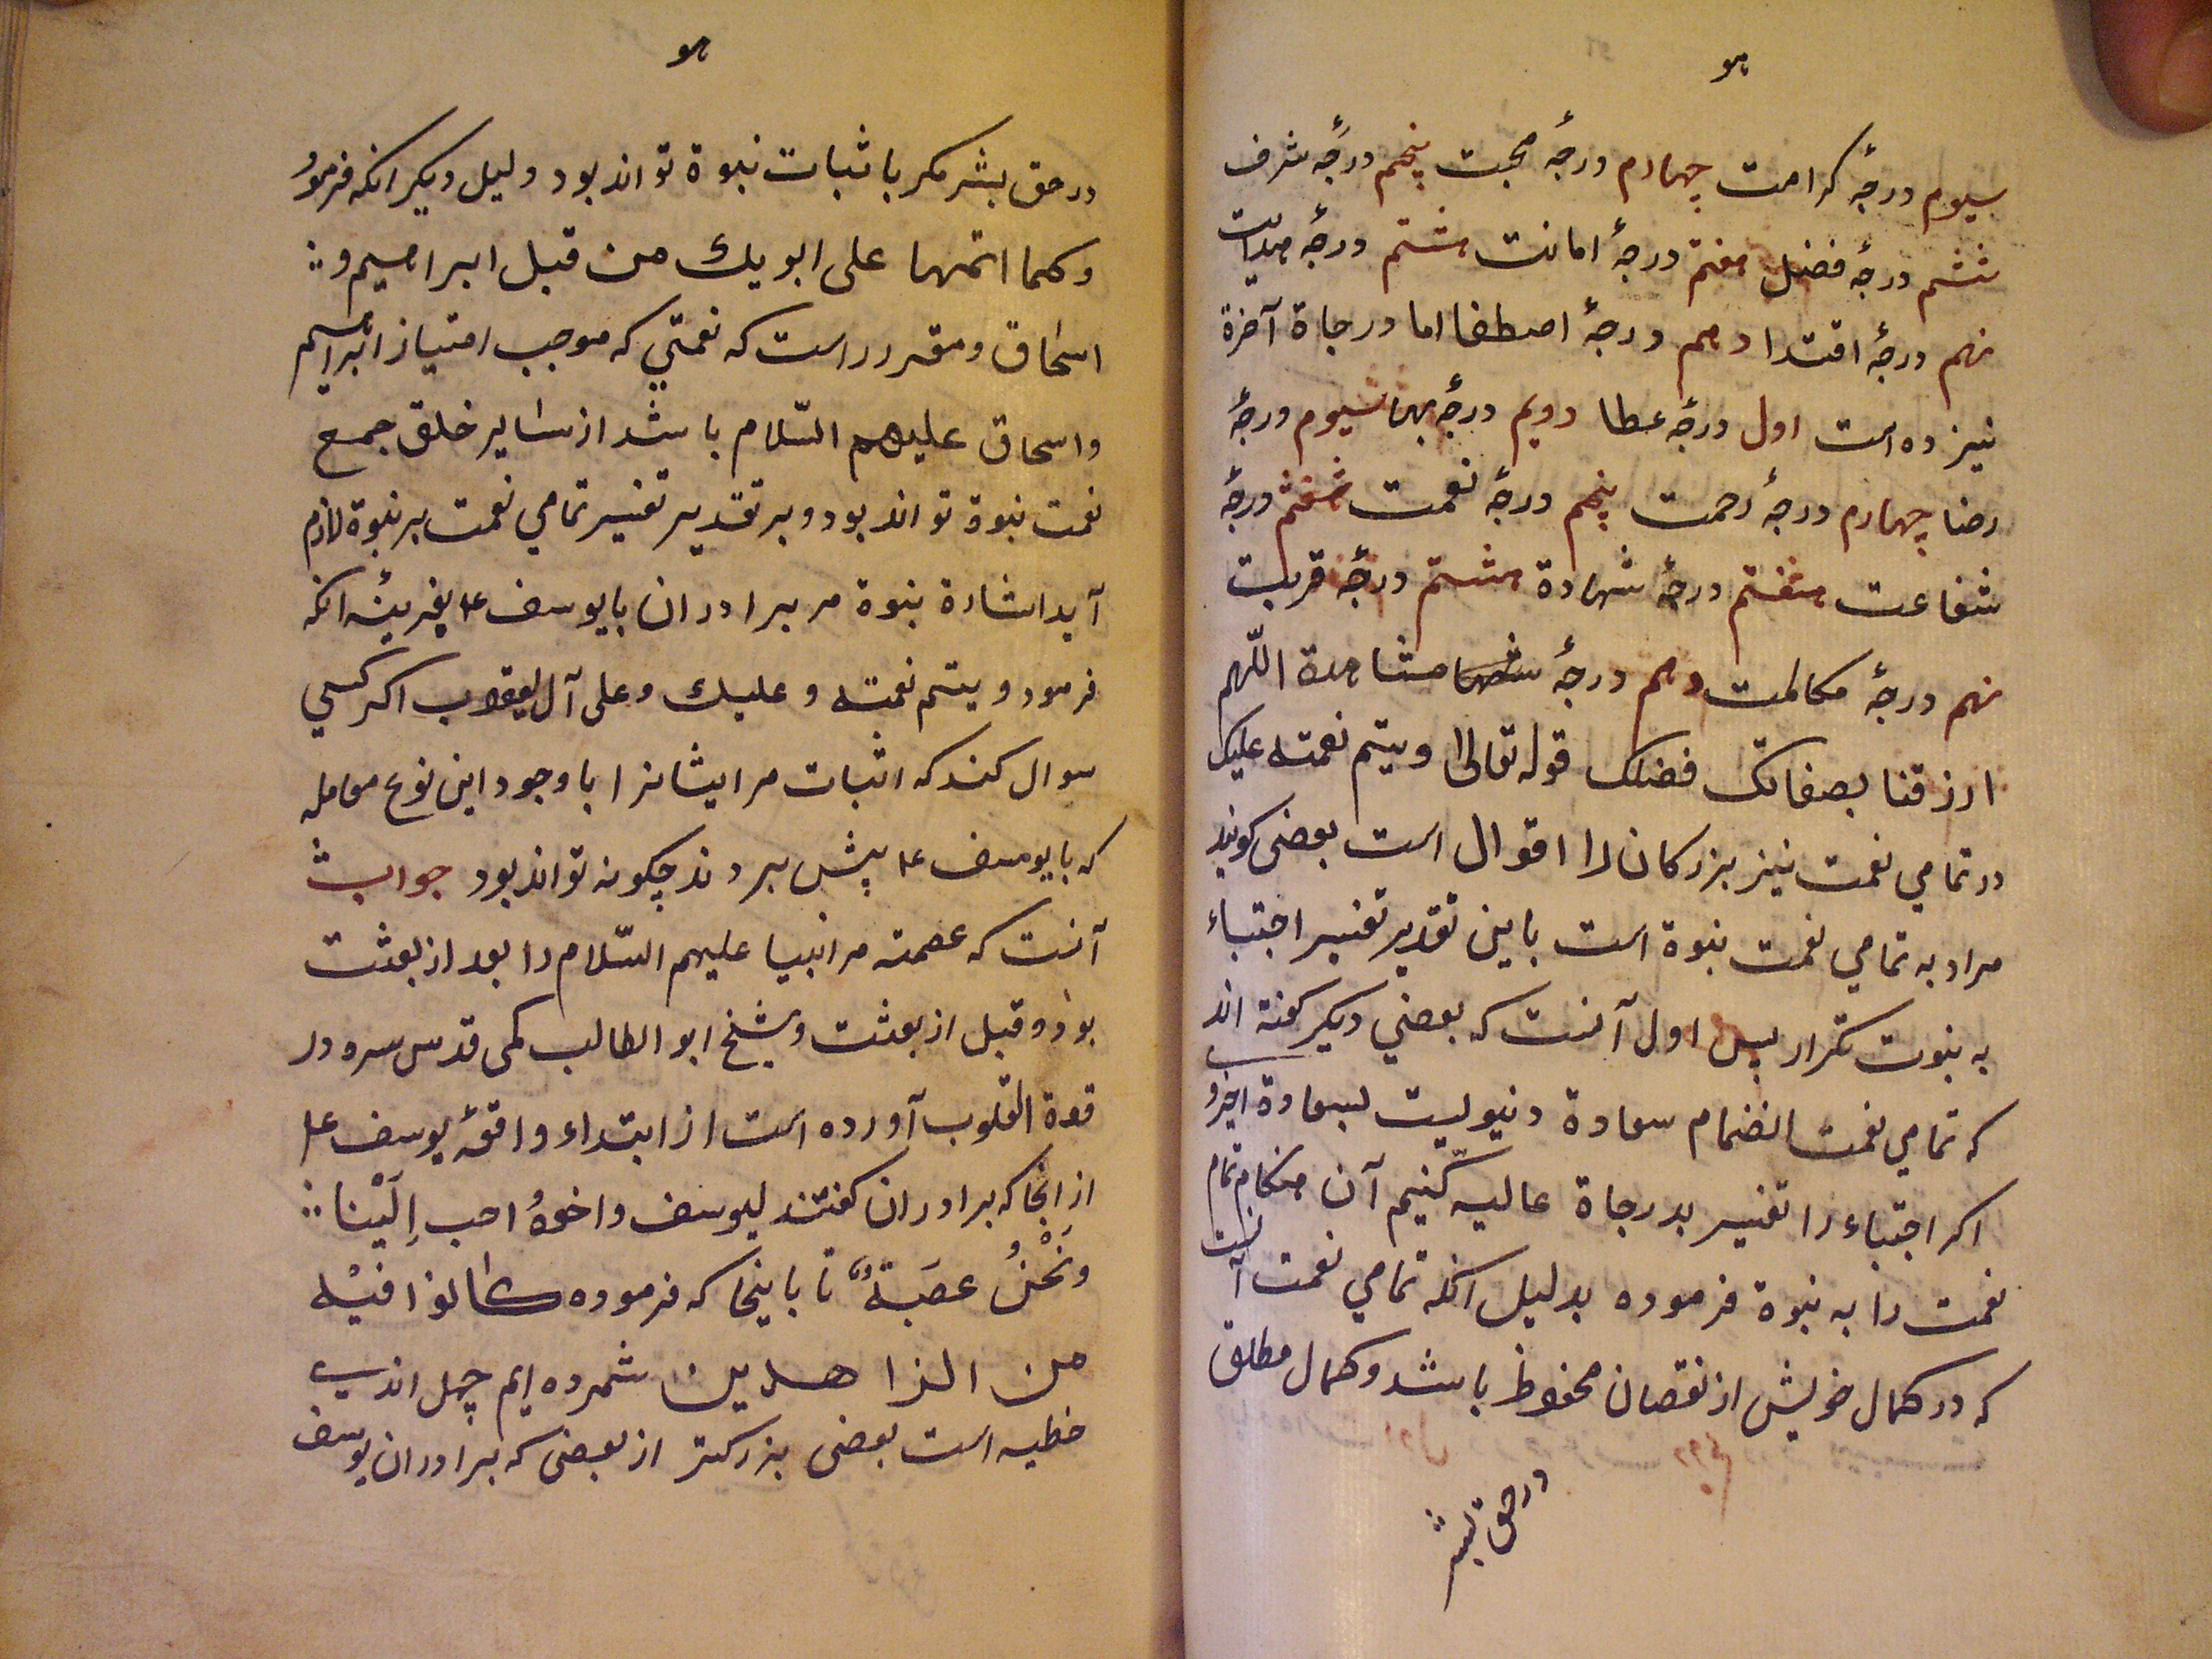 هو
سیوم درجهٔ کرامت چهارم درجهٔ محبت پنجم درجهٔ شرف
ششم درجهٔ فضل هفتم درجهٔ امانت هشتم درجهٔ هدایت
نهم درجهٔ اقتدا دهم درجهٔ اصطفا اما درجاة آخرة
نیز ده است اول درجهٔ عطا دویم درجهٔ بها سیوم درجهٔ
رضا چهارم درجهٔ رحمت پنجم درجهٔ نعمت ششم درجهٔ
شفاعت هفتم درجهٔ شهادة هشتم درجهٔ قربت
نهم درجهٔ مکالمت دهم درجهٔ مشاهدة اللّهم
ارزقنا بصفاتک فضلک قوله تعالی ویتم نعمته علیک
در تمامی نعمت نیز بزرکان را اقوال است بعضی کویند
مراد به تمامی نعمت نبوة است باین تقدیر تفسیر اجتباء
به نبوت تکرار پس اول آنست که بعضی دیکر کفته اند
که تمامی نعمت انضمام سعادة دنیویست بسعادة اخروی
اکر اجتباء را تفسیر بدرجاة عالیه کنیم آن هنکام تمام
نعمت را به نبوة فرموده بدلیل انکه تمامی نعمت آنست
که در کمال خویش از نقصان محفوظ باشد و کمال مطلق
در حق بشر
هو
در حق بشر مکر باثبات نبوة تواند بود دلیل دیکر انکه فرمود
وکما اتمها علی ابویك من قبل ابراهیم و
اسحاق ومقرر است که نعمتی که موجب امتیاز ابراهیم
واسحاق علیهم السّلام باشد از سایر خلق جمع
نعمت نبوة تواند بود و بر تقدیر تفسیر تمامی نعمت بر نبوة لازم
آید اشارة نبوة مر برادران با یوسف ع م بقرینهٔ انکه
فرمود ویتم نعمته و علیك وعلی آل یعقوب اکر کسی
سوال کند که اثبات مر ایشانرا با وجود این نوع معامله
که با یوسف ع م پیش بردند چکونه تواند بود جواب
آنست که عصمة مر انبیا علیهم السّلام را بعد از بعثت
بود و قبل از بعثت و شیخ ابو الطالب مکی قدس سره در
قوة القلوب آورده است از ابتداء واقعهٔ یوسف ع م
از انجا که برادران کفتند لیوسف واخوهُ احب اِلَیْنا
ونَحْنُ عصَبةٌ تا باینجا که فرموده کانوا فیه
من الزاهدین شمرده ایم چهل اندی
خطیه است بعضی بزرکتر از بعضی که برادران یوسف